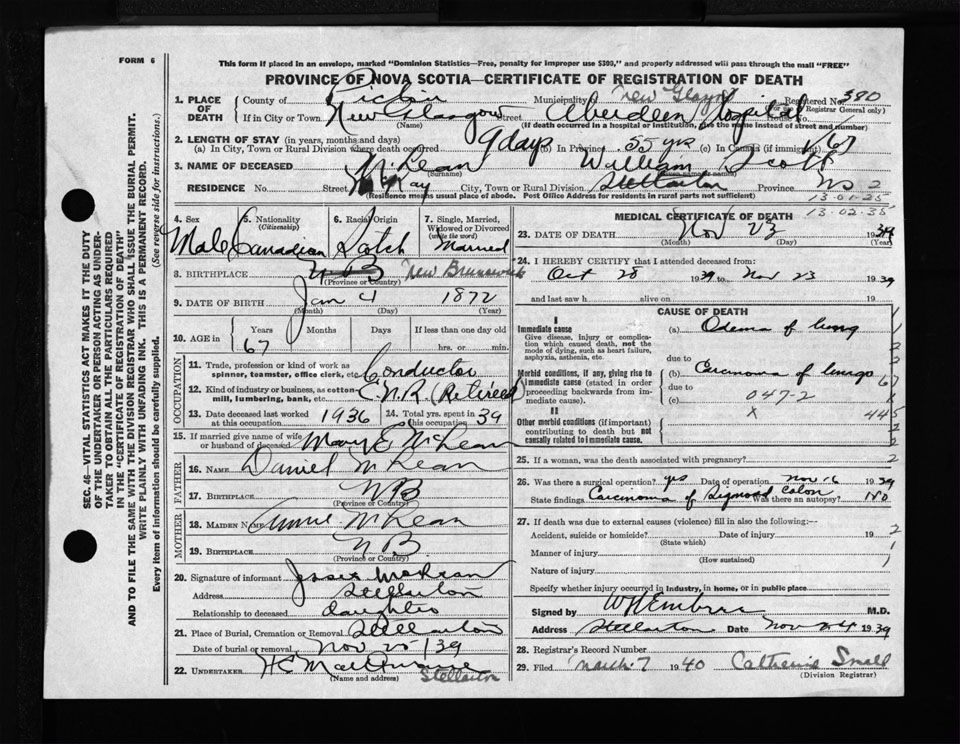 FORM 6
This form if placed in an envelope, marked "Dominion Statistics—Free, penalty for improper use $300," and properly addressed will pass through the mail "FREE"
PROVINCE OF NOVA SCOTIA—CERTIFICATE OF REGISTRATION OF DEATH
1. PLACE OF DEATH County of Pictou Municipality of New Glasgow Registered No. 390
(For use of Registrar General only)
If in City or Town New Glasgow Street Aberdeen Hospital House No.
(Name) (If death occurred in a hospital or institution, give the name instead of street and number)
2. LENGTH OF STAY (in years, months and days)
(a) In City, Town or Rural Division where death occurred 9 days (b) In Province 55 yrs (c) In Canada (if immigrant) 67
3. NAME OF DECEASED McLean William Scott
(Surname) (Given name or names)
RESIDENCE No. Street McKay City, Town or Rural Division Stellarton Province NS 2
(Residence means usual place of abode. Post Office Address for residents in rural parts not sufficient)
13-01-25
13-02-35
4. Sex 5. Nationality (Citizenship) 6. Racial Origin 7. Single, Married, Widowed or Divorced (write the word)
Male Canadian Scotch Married
8. BIRTHPLACE NB New Brunswick
(Province or Country)
9. DATE OF BIRTH Jan 4 1872
(Month) (Day) (Year)
10. AGE in Years Months Days If less than one day old
67 hrs. or min.
OCCUPATION
11. Trade, profession or kind of work as spinner, teamster, office clerk, etc. Conductor
12. Kind of industry or business, as cotton mill, lumbering, bank, etc. C.N.R. (Retired)
13. Date deceased last worked at this occupation 1936 14. Total yrs. spent in this occupation 39
15. If married give name of wife or husband of deceased Mary E McLean
FATHER
16. NAME Daniel McLean
17. BIRTHPLACE NB
(Province or Country)
MOTHER
18. MAIDEN NAME Annie McLean
19. BIRTHPLACE NB
(Province or Country)
20. Signature of informant Jessie McLean
Address Stellarton
Relationship to deceased daughter
21. Place of Burial, Cremation or Removal Stellarton
Date of burial or removal Nov 25/39
22. UNDERTAKER H C
(Name and address) Stellarton
MEDICAL CERTIFICATE OF DEATH
23. DATE OF DEATH Nov 23 1939
(Month) (Day) (Year)
24. I HEREBY CERTIFY that I attended deceased from:
Oct 28 1939 to Nov 23 1939
and last saw h alive on 19
CAUSE OF DEATH
I
Immediate cause
Give disease, injury or complication which caused death, not the mode of dying, such as heart failure, asphyxia, asthenia, etc.
(a) Odema of lung
due to
Morbid conditions, if any, giving rise to immediate cause (stated in order proceeding backwards from immediate cause).
(b) Carcinoma of lungs
due to
(c) 047-2
II
Other morbid conditions (if important) contributing to death but not causally related to immediate cause.
X 445
25. If a woman, was the death associated with pregnancy?
26. Was there a surgical operation? yes Date of operation Nov 16 1939
State findings Carcinoma of Sigmoid Colon Was there an autopsy? No
27. If death was due to external causes (violence) fill in also the following:—
Accident, suicide or homicide? Date of injury 19
(State which)
Manner of injury
(How sustained)
Nature of injury
Specify whether injury occurred in industry, in home, or in public place
Signed by M.D.
Address Stellarton Date Nov 24 1939
28. Registrar's Record Number
29. Filed March 7 1940 Catherine Small
(Division Registrar)
SEC. 46—VITAL STATISTICS ACT MAKES IT THE DUTY
OF THE UNDERTAKER OR PERSON ACTING AS UNDERTAKER TO OBTAIN ALL THE PARTICULARS REQUIRED
IN THE "CERTIFICATE OF REGISTRATION OF DEATH"
AND TO FILE THE SAME WITH THE DIVISION REGISTRAR WHO SHALL ISSUE THE BURIAL PERMIT.
WRITE PLAINLY WITH UNFADING INK. THIS IS A PERMANENT RECORD.
Every item of information should be carefully supplied. (See reverse side for instructions.)